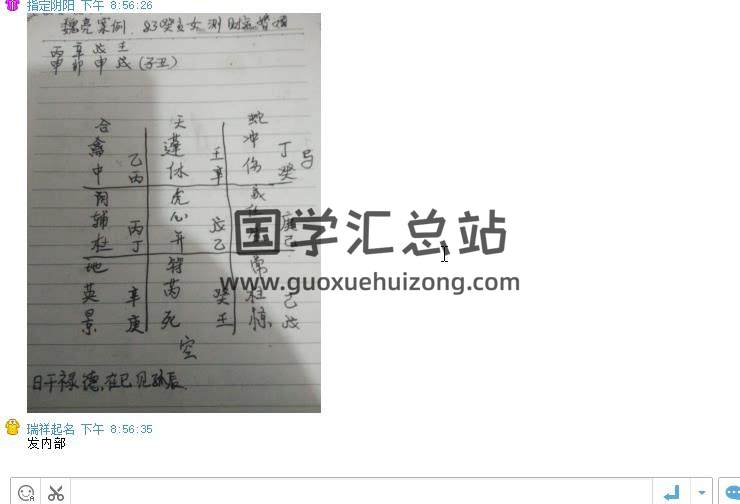 指定阴阳 下午 8:56:26
魏亮案例. 83癸亥女 测财运婚姻
丙 辛 戊 壬
申 卯 申 戌(子丑)
合 天 蛇
禽 乙 蓬 壬 冲 丁 马
中 丙 休 辛 伤 癸
阴 虎 玄
辅 丙 心 戊 庚
杜 丁 开 乙 己
地 符 常
英 辛 芮 癸 柱 己
景 庚 死 壬 惊 戊
空
日干禄德,在巳见孤辰
国学汇总站
www.guoxuehuizong.com
瑞祥起名 下午 8:56:35
发内部